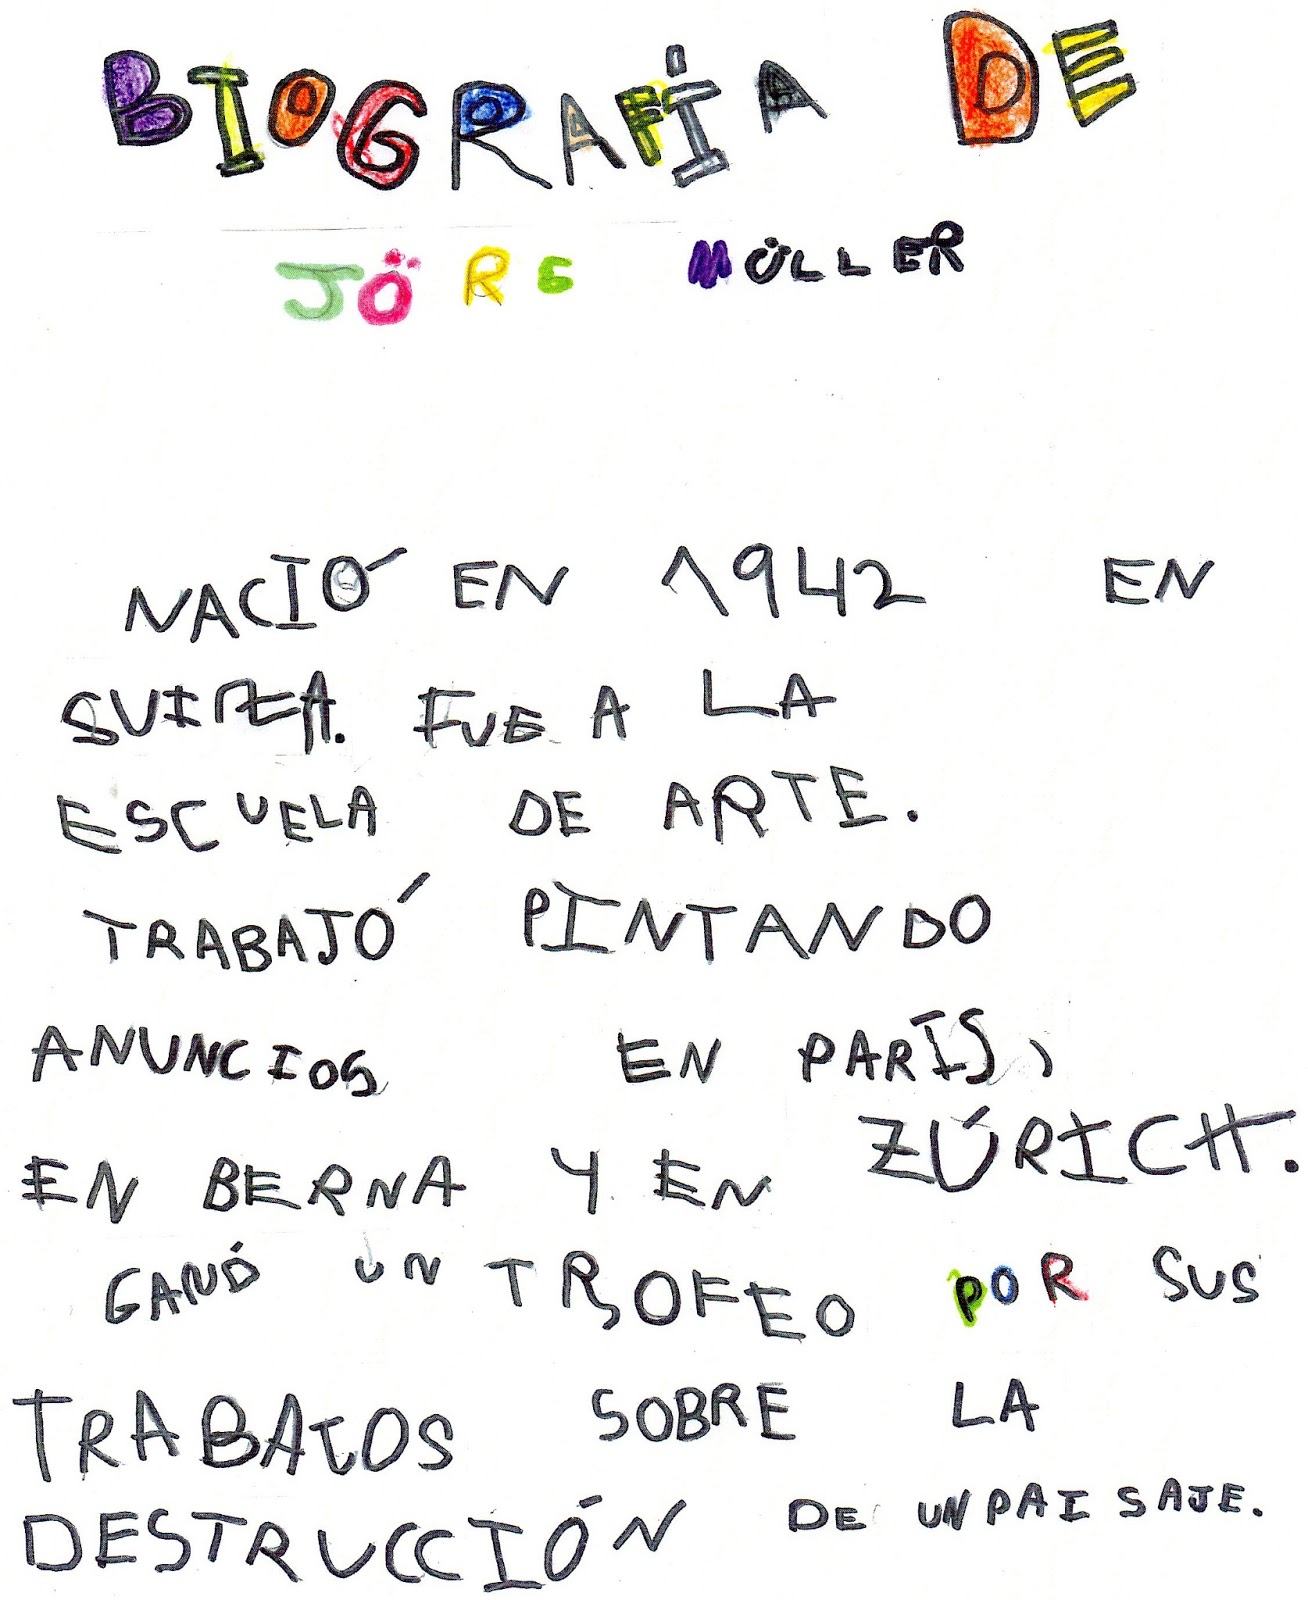 BIOGRAFÍA DE
JÖRG MÜLLER
NACIÓ EN 1942 EN
SUIZA. FUE A LA
ESCUELA DE ARTE.
TRABAJÓ PINTANDO
ANUNCIOS EN PARÍS,
EN BERNA Y EN ZÚRICH.
GANÓ UN TROFEO POR SUS
TRABAJOS SOBRE LA
DESTRUCCIÓN DE UN PAISAJE.